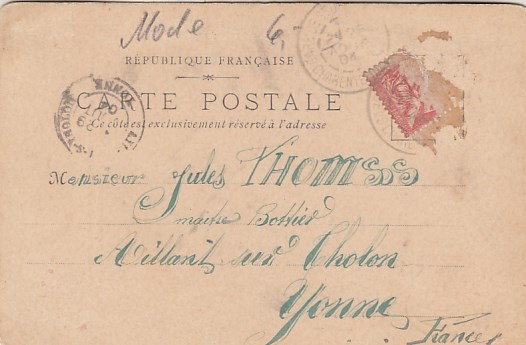 Mode 6,-
RÉPUBLIQUE FRANÇAISE
CARTE POSTALE
Ce côté est exclusivement réservé à l'adresse
YONNE
04
CHARENT
04
Monsieur Jules THOMSSS
maitre Bottier
Aillant sur Tholon
Yonne
France